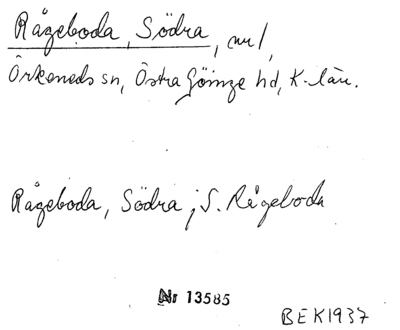 Rågeboda, Södra, nr 1,
Örkeneds sn, Östra Göinge hd, K-län.
Rågeboda, Södra ; S. Rågeboda
Nr 13585
BEK1937